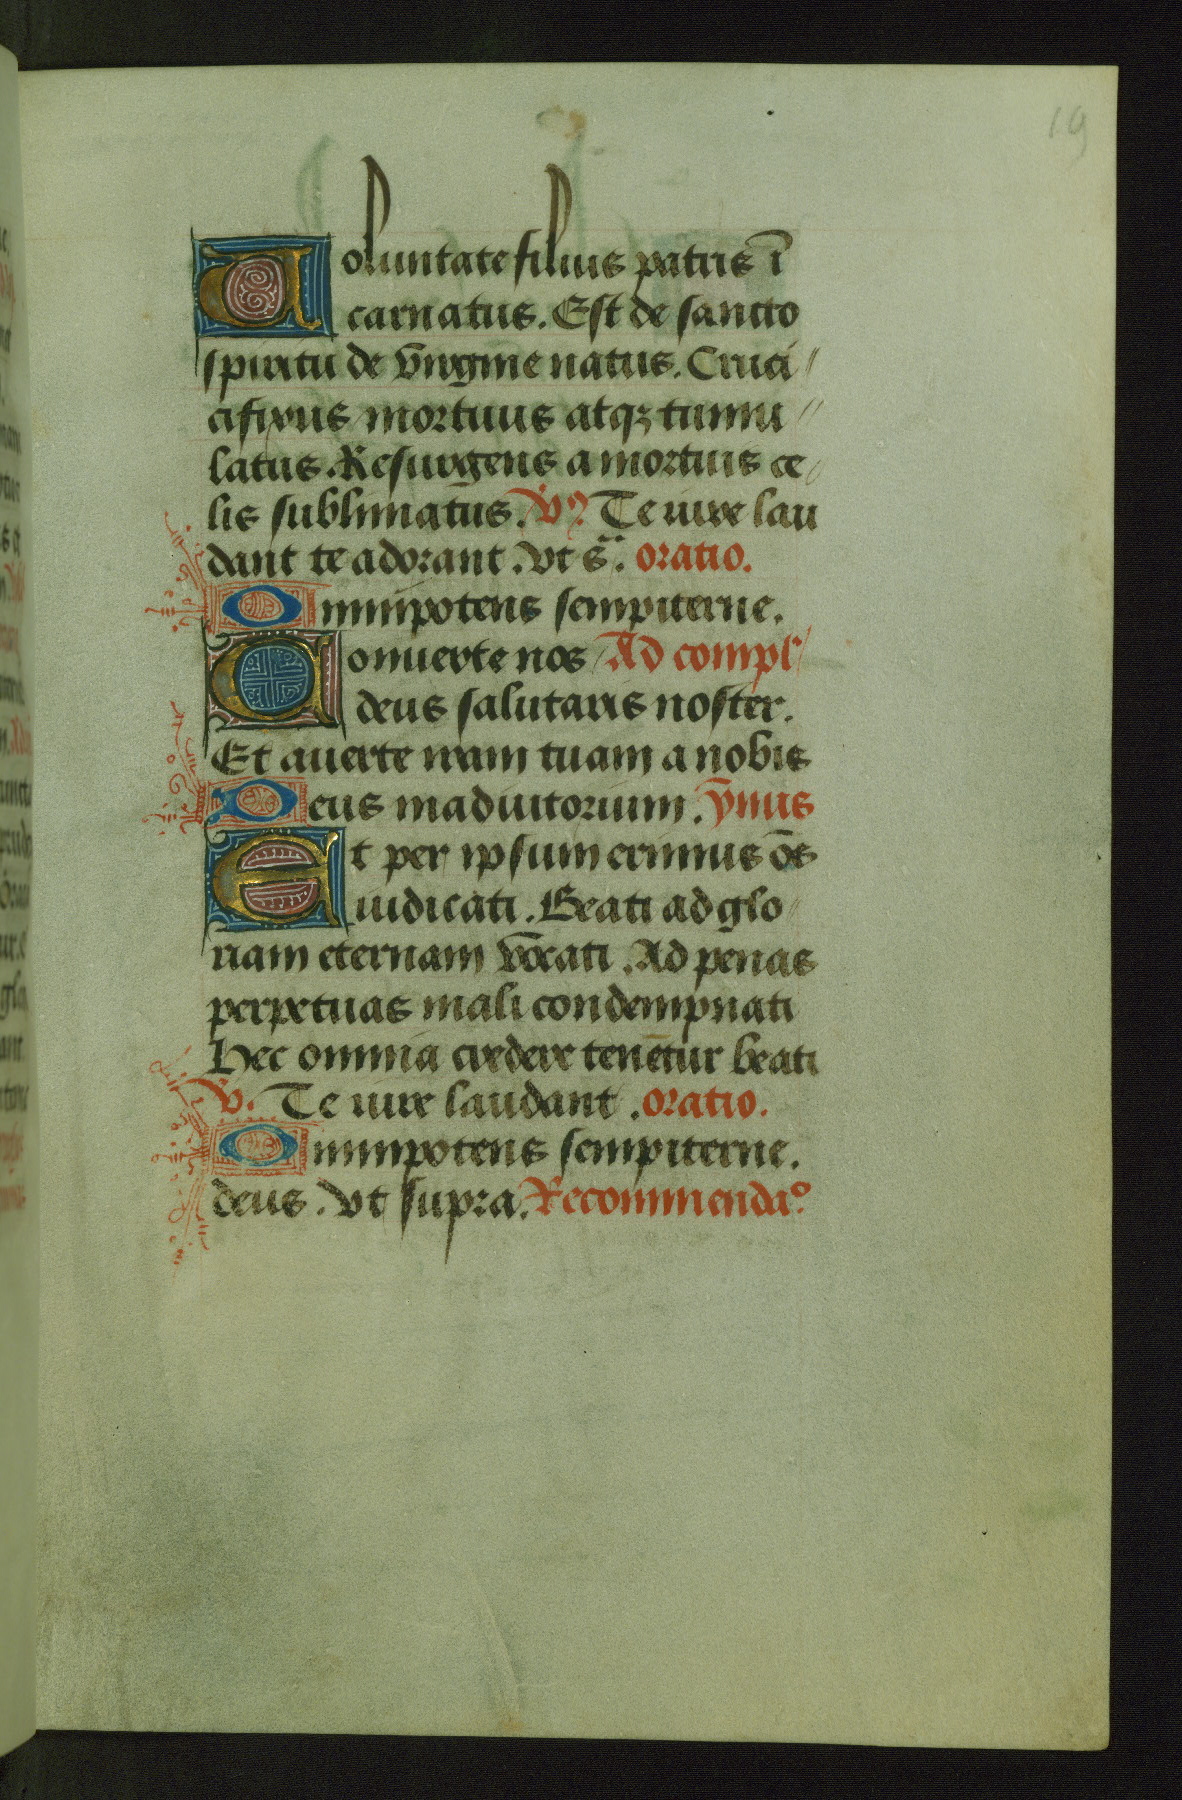 19
Voluntate filius patris ī
carnatus. Est de sancto
spiritu de v̄irgine natus. Cruci
cifixus mortuus atqꝫ tumu
latus. Resurgens a mortuis ce
lis sublimatus. V̄ꝰ. Te iure lau
dant te adorant. vt s̄. oratio.
Omnipotens sempiterne.
Conuerte nos Ad compl'
deus salutaris noster.
Et auerte iram tuam a nobis
Deus in adiutorium. ȳnus
Et per ipsum erimus ōs
iudicati. Beati ad glo
riam eternam vocati. Ad penas
perpetuas mali condempnati
Hec omnia credere tenētur beati
V. Te iure laudant. oratio.
Omnipotens sempiterne.
deus. vt supra. Recommendaᵒ